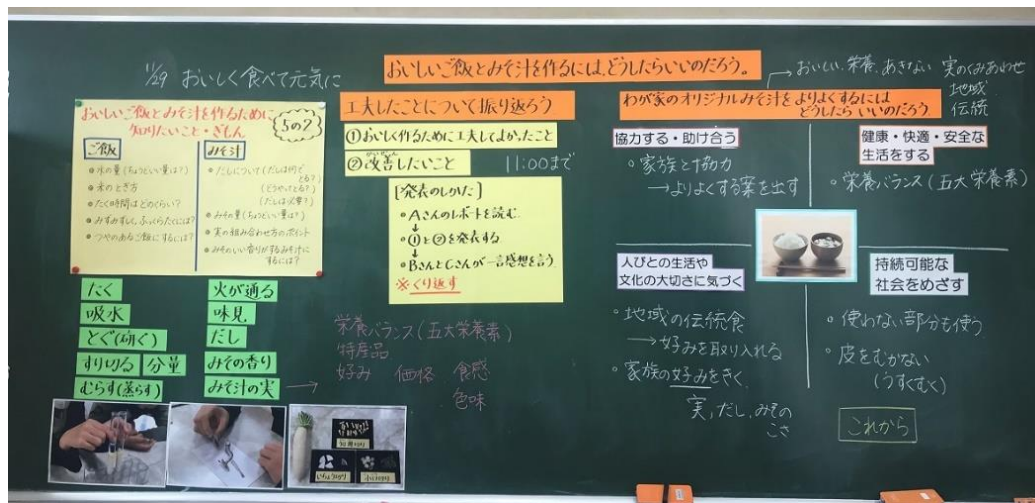 11/29 おいしく食べて元気に
おいしいご飯とみそ汁を作るには、どうしたらいいのだろう。
おいしいご飯とみそ汁を作るために
知りたいこと・ぎもん
5の2
ご飯
・水の量(ちょうどいい量は?)
・米のとぎ方
・たく時間はどのくらい?
・みずみずしくふっくらたくには?
・つやのあるご飯にするには?
みそ汁
・だしについて(だしは何でとる?)
(どうやってとる?)
(だしは必要?)
・みその量(ちょうどいい量は?)
・実の組み合わせ方のポイント
・みそのいい香りがするみそ汁に
するには?
たく
吸水
とぐ(研ぐ)
すり切る 分量
むらす(蒸らす)
火が通る
味見
だし
みその香り
みそ汁の実
→
工夫したことについて振り返ろう
①おいしく作るために工夫してよかったこと
②改善したいこと
かいぜん
11:00まで
[発表のしかた]
・Aさんのレポートを読む。
↓
・①と②を発表する
↓
・BさんとCさんが一言感想を言う。
※くり返す
栄養バランス(五大栄養素)
特産品
好み 価格 食感
色味
いちょう切り
わが家のオリジナルみそ汁をよりよくするには
どうしたらいいのだろう。
→おいしい、栄養、あきない 実のくみあわせ
地域
伝統
協力する・助け合う
・家族と協力
→よりよくする案を出す
健康・快適・安全な
生活をする
・栄養バランス(五大栄養素)
人びとの生活や
文化の大切さに気づく
・地域の伝統食
→好みを取り入れる
・家族の好みをきく
実,だし,みその
こさ
持続可能な
社会をめざす
・使わない部分も使う
・皮をむかない
(うすくむく)
これから